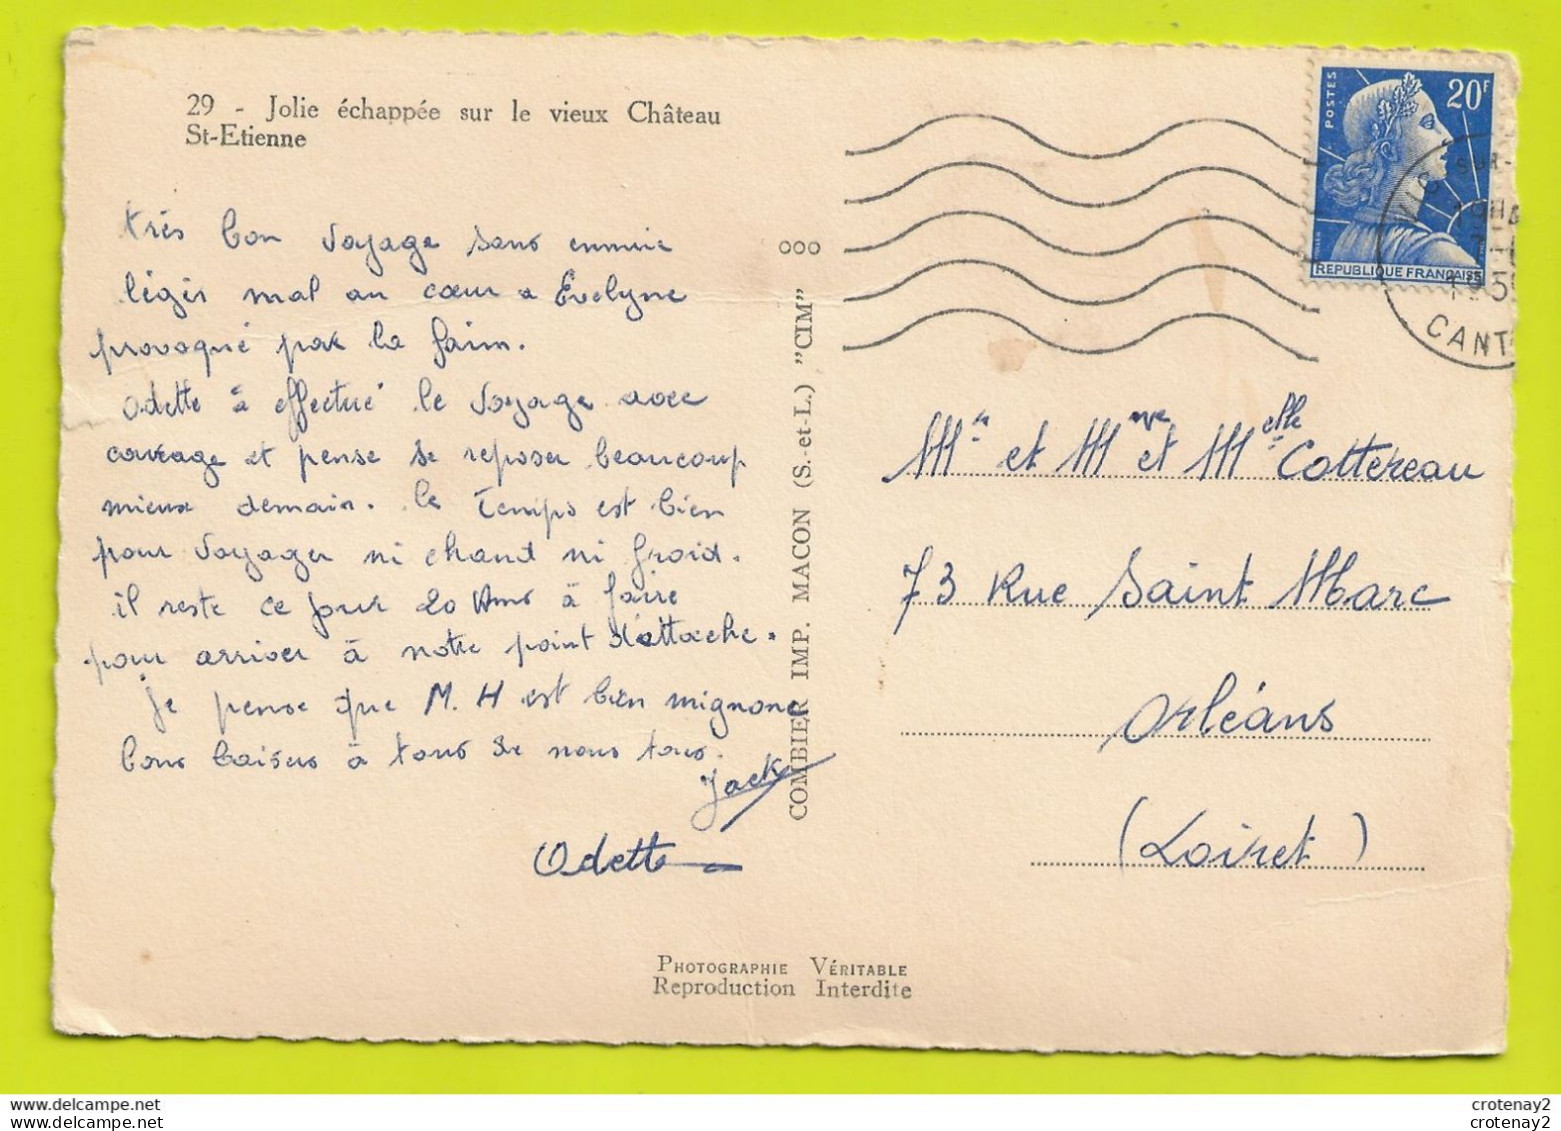 29 - Jolie échappée sur le vieux Château
St-Etienne
très bon voyage sans ennuie
légèr mal au cœur a Evelyne
provoqué par la faim.
Odette à effectué le voyage avec
courage et pense se reposer beaucoup
mieux demain. le temps est bien
pour voyager ni chaud ni froid.
il reste ce jour 20 Kms à faire
pour arriver à notre point d'attache.
je pense que M.H est bien mignone
bons baisers à tous de nous tous.
Jack
Odette
COMBIER IMP. MACON (S.-et-L.) "CIM"
POSTES
20F
MULLER
REPUBLIQUE FRANÇAISE
VIC SUR-
CANT
Mr et Mme et Melle Cottereau
73 Rue Saint Marc
Orléans
(Loiret)
PHOTOGRAPHIE VÉRITABLE
Reproduction Interdite
delcampe.net
crotenay2
delcampe.net
crotenay2